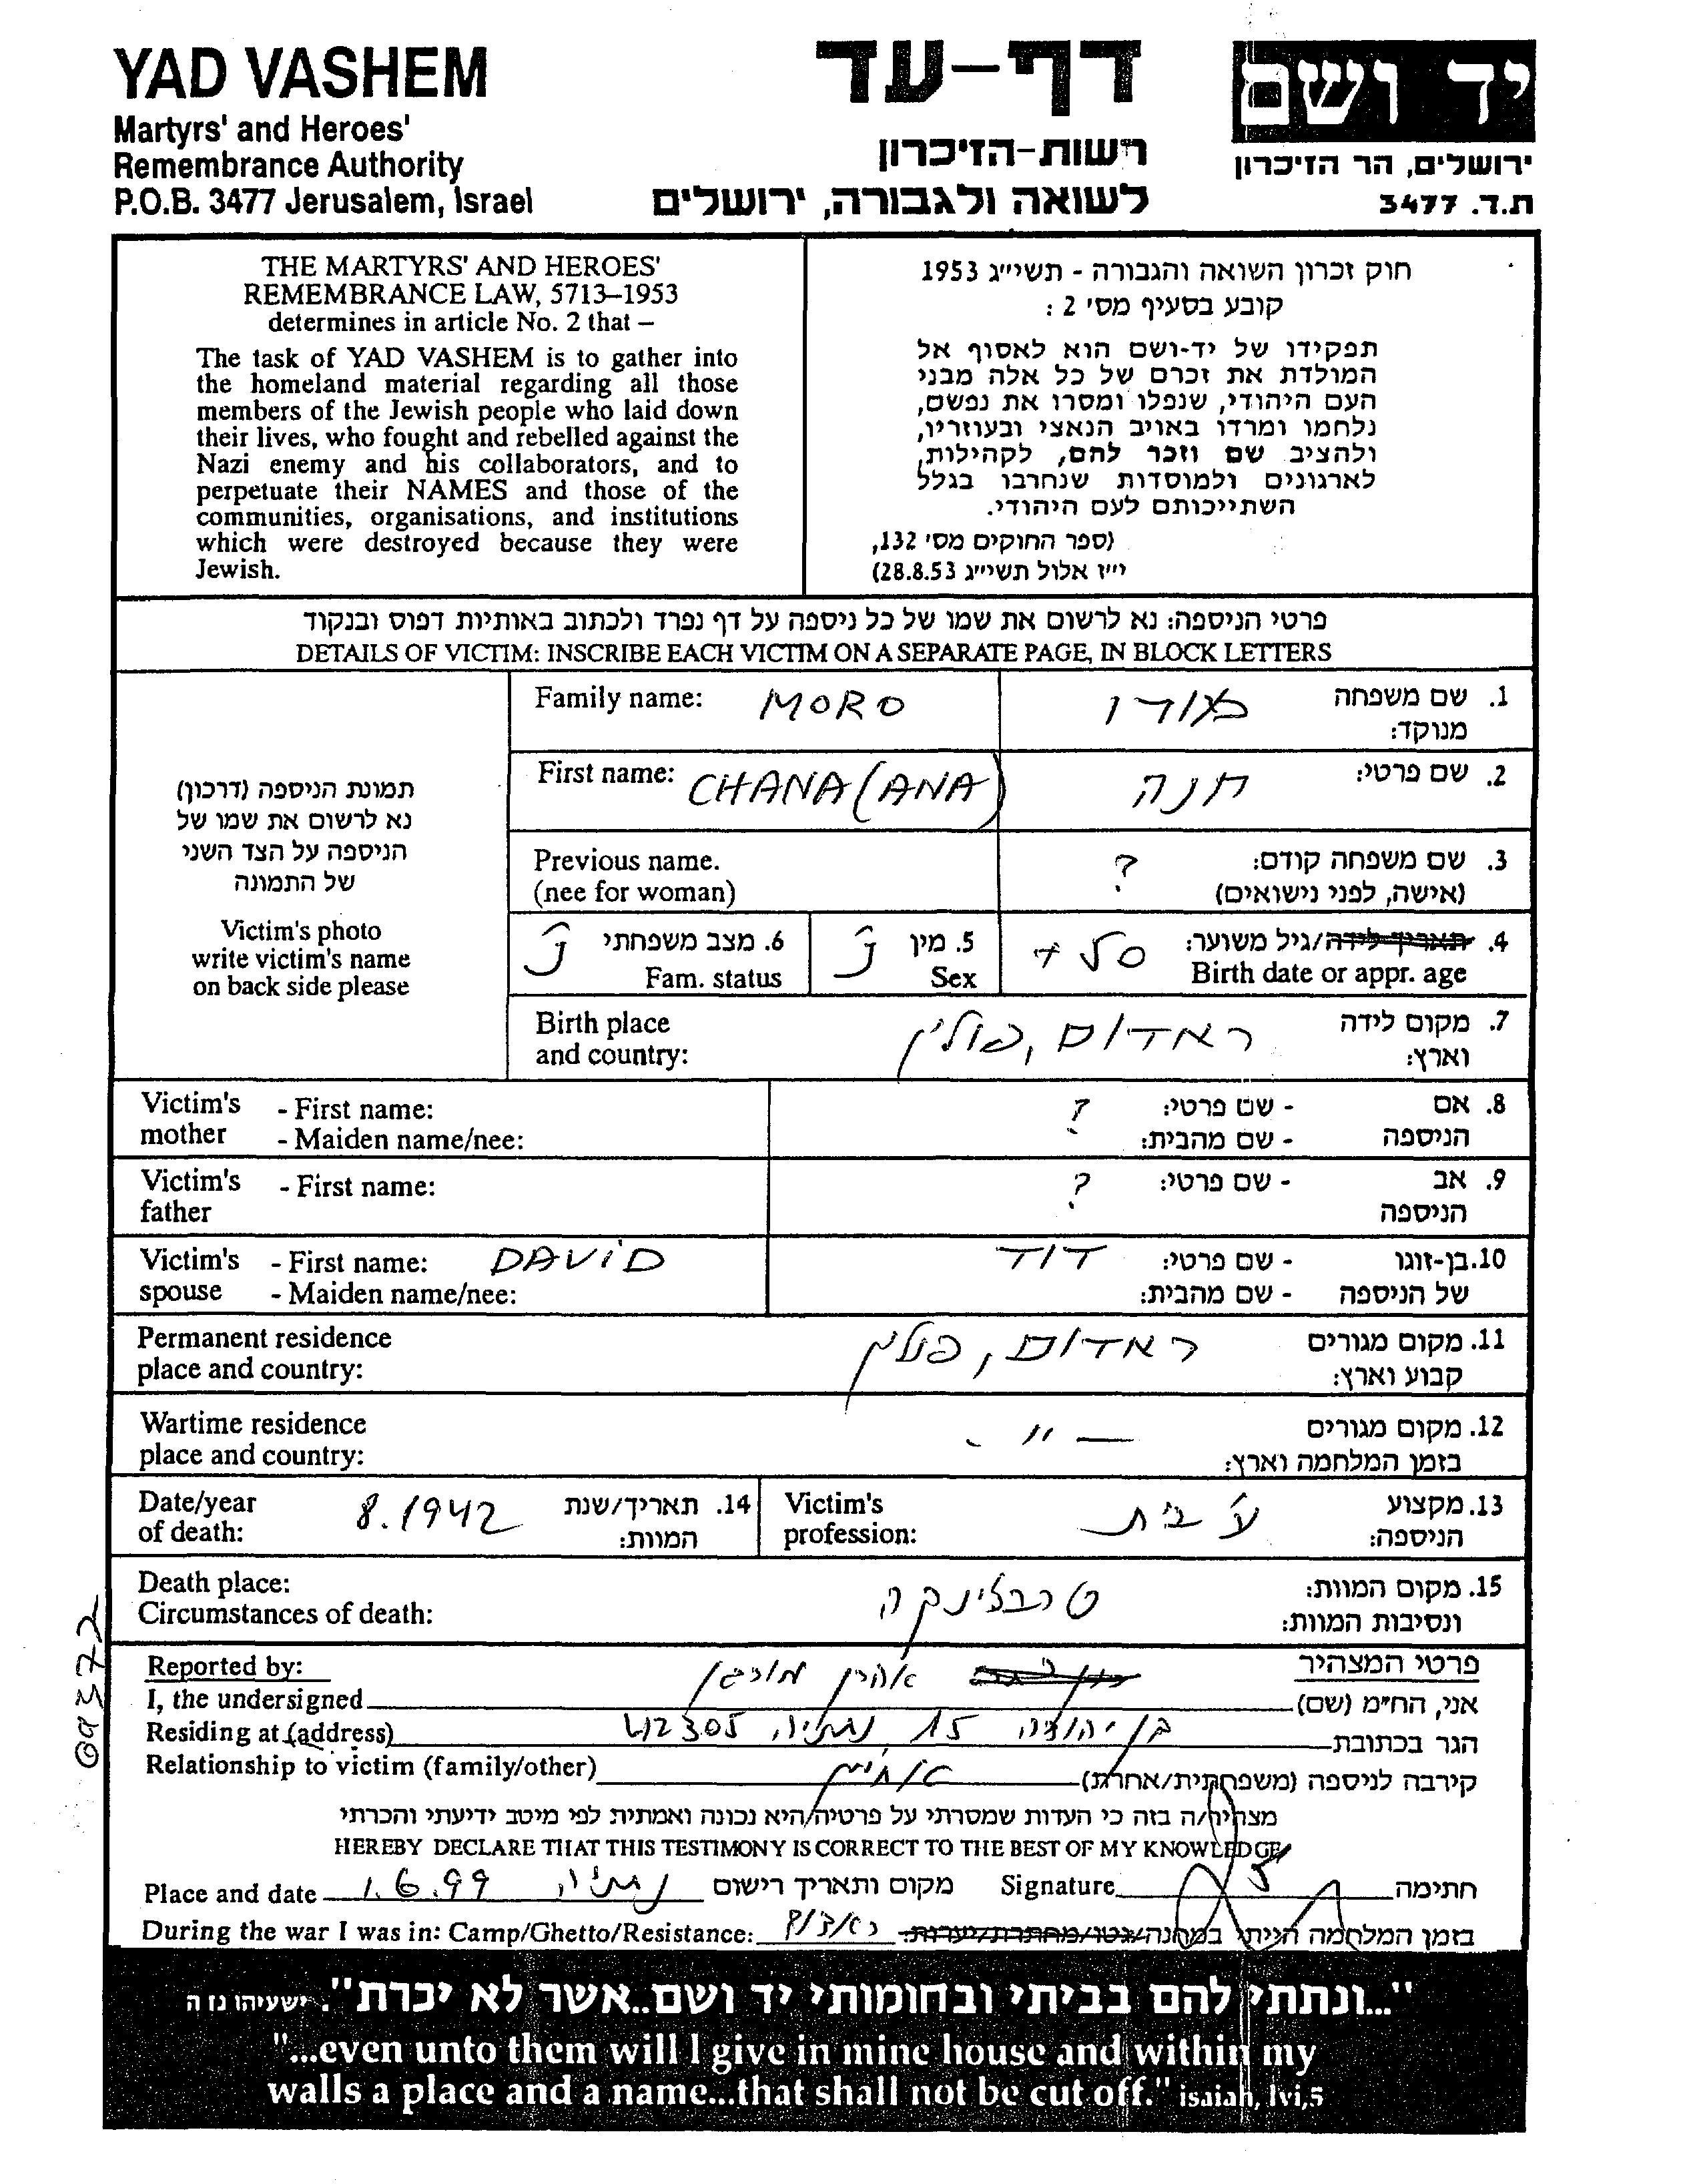 YAD VASHEM
Martyrs' and Heroes'
Remembrance Authority
P.O.B. 3477 Jerusalem, Israel
דף-עד
רשות-הזיכרון
לשואה ולגבורה, ירושלים
יד ושם
ירושלים, הר הזיכרון
ת.ד. 3477
THE MARTYRS' AND HEROES'
REMEMBRANCE LAW, 5713–1953
determines in article No. 2 that –
The task of YAD VASHEM is to gather into
the homeland material regarding all those
members of the Jewish people who laid down
their lives, who fought and rebelled against the
Nazi enemy and his collaborators, and to
perpetuate their NAMES and those of the
communities, organisations, and institutions
which were destroyed because they were
Jewish.
חוק זכרון השואה והגבורה - תשי"ג 1953
קובע בסעיף מס' 2 :
תפקידו של יד-ושם הוא לאסוף אל
המולדת את זכרם של כל אלה מבני
העם היהודי, שנפלו ומסרו את נפשם,
נלחמו ומרדו באויב הנאצי ובעוזריו,
ולהציב שם וזכר להם, לקהילות,
לארגונים ולמוסדות שנחרבו בגלל
השתייכותם לעם היהודי.
(ספר החוקים מס' 132,
י"ז אלול תשי"ג 28.8.53)
פרטי הניספה: נא לרשום את שמו של כל ניספה על דף נפרד ולכתוב באותיות דפוס ובנקוד
DETAILS OF VICTIM: INSCRIBE EACH VICTIM ON A SEPARATE PAGE, IN BLOCK LETTERS
תמונת הניספה (דרכון)
נא לרשום את שמו של
הניספה על הצד השני
של התמונה
Victim's photo
write victim's name
on back side please
Family name: MORO מורו 1. שם משפחה
מנוקד:
First name: CHANA (ANA) חנה 2. שם פרטי:
Previous name. ? 3. שם משפחה קודם:
(nee for woman) (אישה, לפני נישואים)
נ' 6. מצב משפחתי נ' 5. מין 50 + 4. תאריך לידה/גיל משוער:
Fam. status Sex Birth date or appr. age
Birth place ראדום, פולין 7. מקום לידה
and country: וארץ:
Victim's - First name: ? - שם פרטי: 8. אם
mother - Maiden name/nee: - שם מהבית: הניספה
Victim's - First name: ? - שם פרטי: 9. אב
father הניספה
Victim's - First name: DAVID דוד - שם פרטי: 10. בן-זוגו
spouse - Maiden name/nee: - שם מהבית: של הניספה
Permanent residence ראדום, פולין 11. מקום מגורים
place and country: קבוע וארץ:
Wartime residence — " - 12. מקום מגורים
place and country: בזמן המלחמה וארץ:
Date/year 8.1942 14. תאריך/שנת Victim's ע' בית 13. מקצוע
of death: המוות: profession: הניספה:
Death place: טרבלינקה 15. מקום המוות:
Circumstances of death: ונסיבות המוות:
Reported by: פרטי המצהיר
I, the undersigned אהרן אני, הח"מ (שם)
Residing at (address) בן יהודה 15, נתניה, 42305 הגר בכתובת
Relationship to victim (family/other) קירבה לניספה (משפחתית/אחרת)
מצהיר/ה בזה כי העדות שמסרתי על פרטיה/היא נכונה ואמתית לפי מיטב ידיעתי והכרתי
HEREBY DECLARE THAT THIS TESTIMONY IS CORRECT TO THE BEST OF MY KNOWLEDGE
Place and date 1.6.99 נתניה, מקום ותאריך רישום Signature חתימה
During the war I was in: Camp/Ghetto/Resistance: ראדום בזמן המלחמה הייתי במחנה/גטו/מחתרת/יערות:
09372
"...ונתתי להם בביתי ובחומותי יד ושם..אשר לא יכרת". ישעיהו נז ה
"...even unto them will I give in mine house and within my
walls a place and a name...that shall not be cut off." isaiah, lvi,5